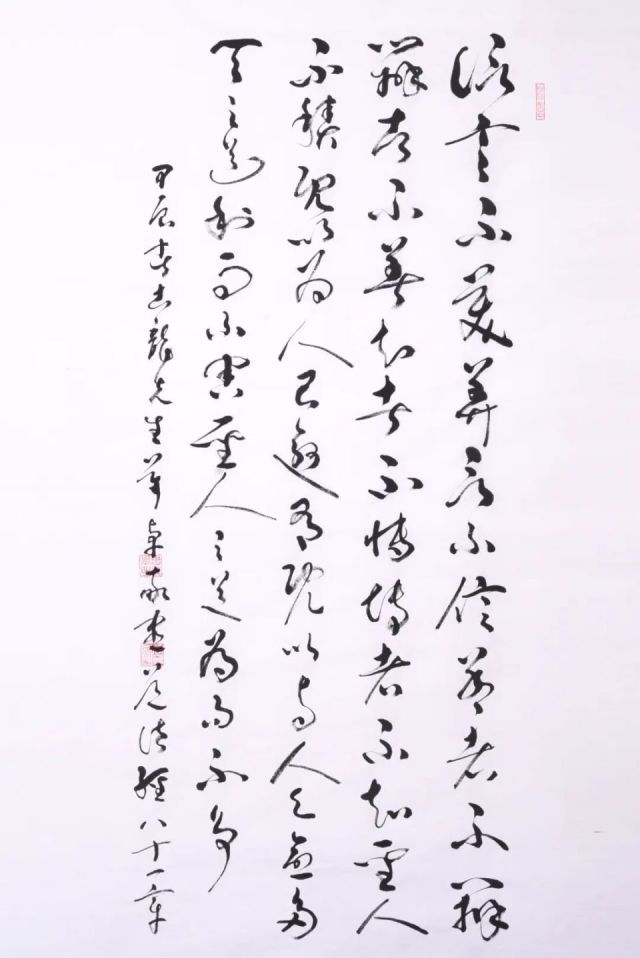 信言不美美言不信善者不辯
辯者不善知者不博博者不知聖人
不積既以為人己愈有既以與人己愈多
天之道利而不害聖人之道為而不爭
甲辰春龍先生草道德經八十一章